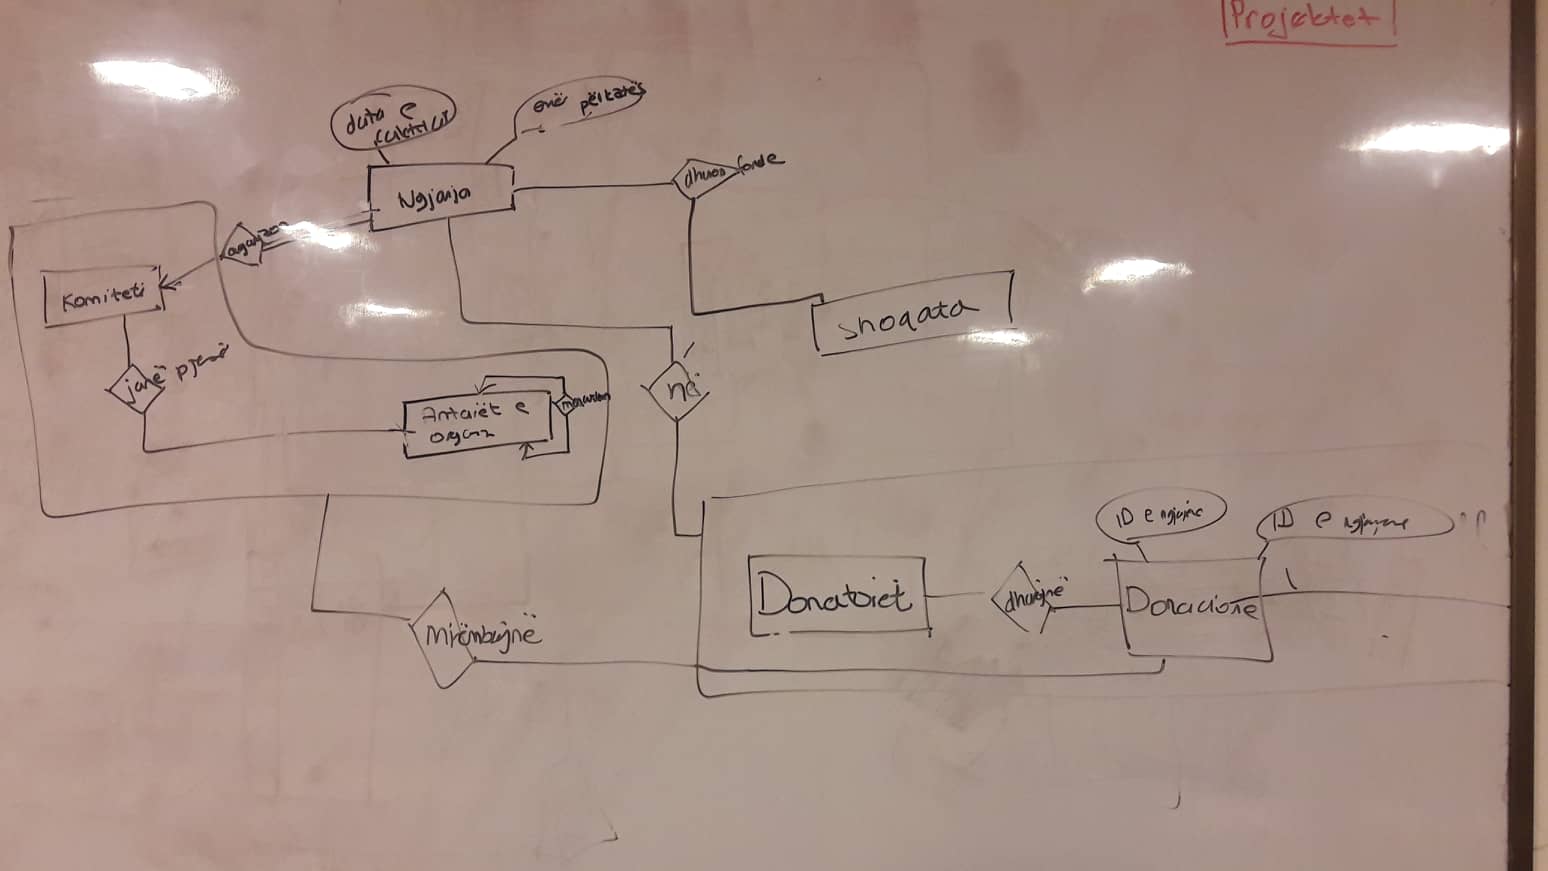 Projektet
data e
emë përkatës
Ngjarja
dhuron fonde
organizon
Komiteti
shoqata
janë pjesë
në
Antarët e
organiz
ID e ngjarjes
ID e ngjarjes
Donatorët
dhurojnë
Doracione
mirëmbajnë